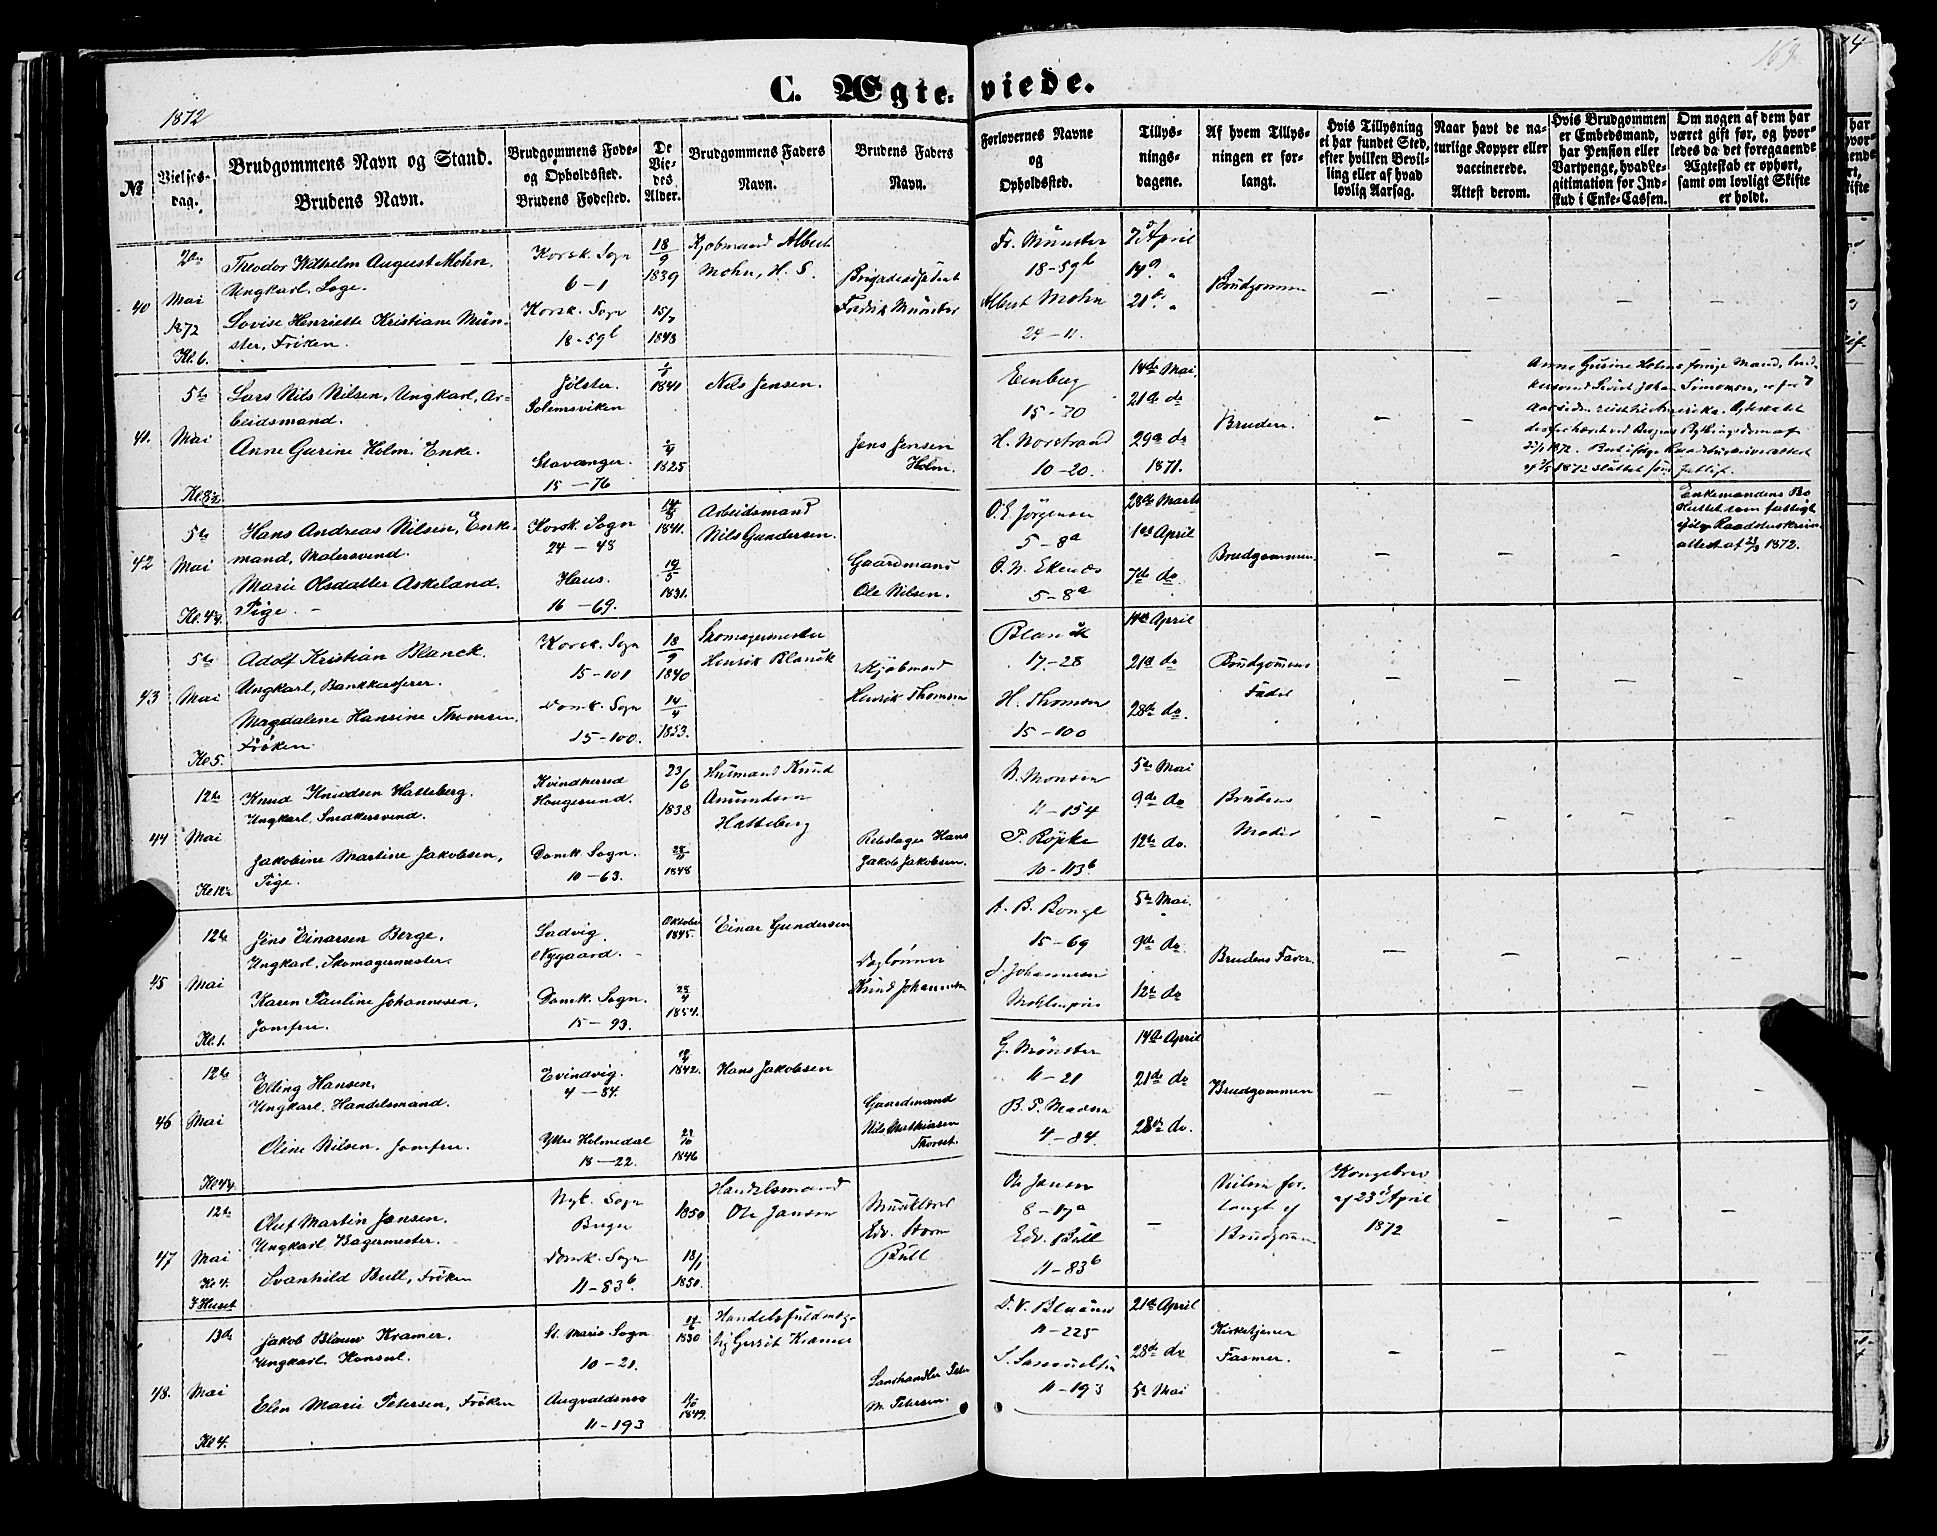 C. Ægteviede.
1872
No
Vielses-
dag.
Brudgommens Navn og Stand.
Brudens Navn.
Brudgommens Føde-
og Opholdssted.
Brudens Fødested.
De
Vie-
des
Alder.
Brudgommens Faders
Navn.
Brudens Faders
Navn.
Forlovernes Navne
og
Opholdssted.
Tillys-
nings-
dagene.
Af hvem Tillys-
ningen er for-
langt.
Hvis Tillysning
ei har fundet Sted,
efter hvilken Bevil-
ling eller af hvad
lovlig Aarsag.
Naar havt de na-
turlige Kopper eller
vaccinerede.
Attest derom.
Hvis Brudgommen
er Embedsmand,
har Pension eller
Vartpenge, hvad Le-
gitimation for Ind-
skud i Enke-Cassen.
Om nogen af dem har
været gift før, og hvor-
ledes da det foregaaende
Ægteskab er ophørt,
samt om lovligt Skifte
er holdt.
40
2den
Mai
1872
Kl. 6.
Theodor Vilhelm August Mohn.
Ungkarl,
Lovise Henriette Kristiane Mün-
ster, Frøken.
Korsk. Sogn
6-1
Korsk. Sogn
18-59b
18/9
1839
15/7
1843
Kjøbmand Albert
Mohn, H. S.
Fredrik Münster
Fr. Münster
18-59b
Albert Mohn
24-11.
7de April
14de "
21de "
Brudgommen
41.
5te
Mai
Kl. 8½
Lars Nils Nilsen, Ungkarl, Ar-
beidsmand.
Anne Gurine Holm, Enke.
Jølster.
Solemsviken
Stavanger.
15-76
1841
1825
Nils Jensen.
Jens Jensen
Holm.
15-70
H. Norstrand
10-20.
14de Mai,
21de do
29de do
1871.
Bruden.
42
5te
Mai
Hans Andreas Nilsen, Enke-
mand, Malersvend.
Marie Olsdatter Askeland.
Pige.
Korsk. Sogn
24-48
Haus.
16-69.
1841.
19/5
1831.
Arbeidsmand
Nils Gundersen.
Gaardmand
Ole Nilsen.
O. E. Jørgensen
5-8a
O. N. Ekenæs
5-8a
28de Marts
1ste April
7de do.
Brudgommen.
Enkemandens Bo
sluttet som fallit
ifølge Raadstueskriver-
attest af 23/3 1872.
43
5te
Mai
Kl. 5.
Adolf Kristian Blanck.
Ungkarl, Bankkasserer.
Magdalene Hansine Thomsen,
Frøken.
Korsk. Sogn
15-101
Domk. Sogn
15-100.
18/9
1840
14/4
1853.
Skomagermester
Henrik Blanck
Kjøbmand
Henrik Thomsen
Blanck
17-28
H. Thomsen
15-100
14de April
21de do
28de do.
Brudgommens
Fader
44
12te
Mai
Kl. 12½
Knud Knudsen Hatteberg.
Ungkarl, Snedkersvend.
Jakobine Martine Jakobsen,
Pige.
Kvindherred
Hougesund.
Domk. Sogn.
10-63.
23/6
1838
28/11
1848
Husmand Knud
Amundsen
Hatteberg
Rebslager Hans
Jakob Jakobsen.
N. Monsen
11-154
P. Røpke
10-113b
5te Mai
9de do
12te do.
Brudens
Moder
45
12te
Mai
Kl. 1.
Jens Einarsen Berge,
Ungkarl, Skomagermester.
Karen Pauline Johannesen,
Jomfru.
Ladvig.
Nygaard.
Domk. Sogn.
15-93.
Oktober
1845.
25/4
1854.
Einar Gundersen
Dagløner
Knud Johannesen
A. B. Bonge
15-69
Johannesen
5te Mai.
9de do
12te do
Brudens Fader.
46
12te
Mai
Elling Hansen,
Ungkarl, Handelsmand.
Oline Nilsen, Jomfru.
Evindvig.
4-84.
Ytre Holmedal
18-22.
1842.
1846
Hans Jakobsen
Gaardmand
Nils Mathiasen
G. Mønster
11-21
B. P. Madsen
4-84.
14de April
21de do
28de do.
Brudgommen
47
12te
Mai
Kl. 4.
I Huset
Oluf Martin Jansen.
Ungkarl, Bagermester.
Svanhild Bull, Frøken
Nyk. Sogn
Bergen
Domk. Sogn
11-83b.
1850
18/1
1850.
Handelsmand
Ole Jansen
Edv. Storm
Bull
Ole Jansen
8-17a
Edv. Bull
11-83b
Vielsen for-
langt af
Brudgommen
Kongebrev
af 23de April
1872
48.
13de
Mai
Kl. 4.
Jakob Blauw Kramer.
Ungkarl, Konsul.
Elen Marie Petersen, Frøken
St. Marie Sogn
10-21.
Augvaldsnæs
11-193
1830
1849.
Handelsfuldmæg-
tig Gerrit Kramer
Landhandler Peter
M. Petersen.
11-225
11-193
21de April
28de do
5te Mai
Kirketjener
Fasmer.